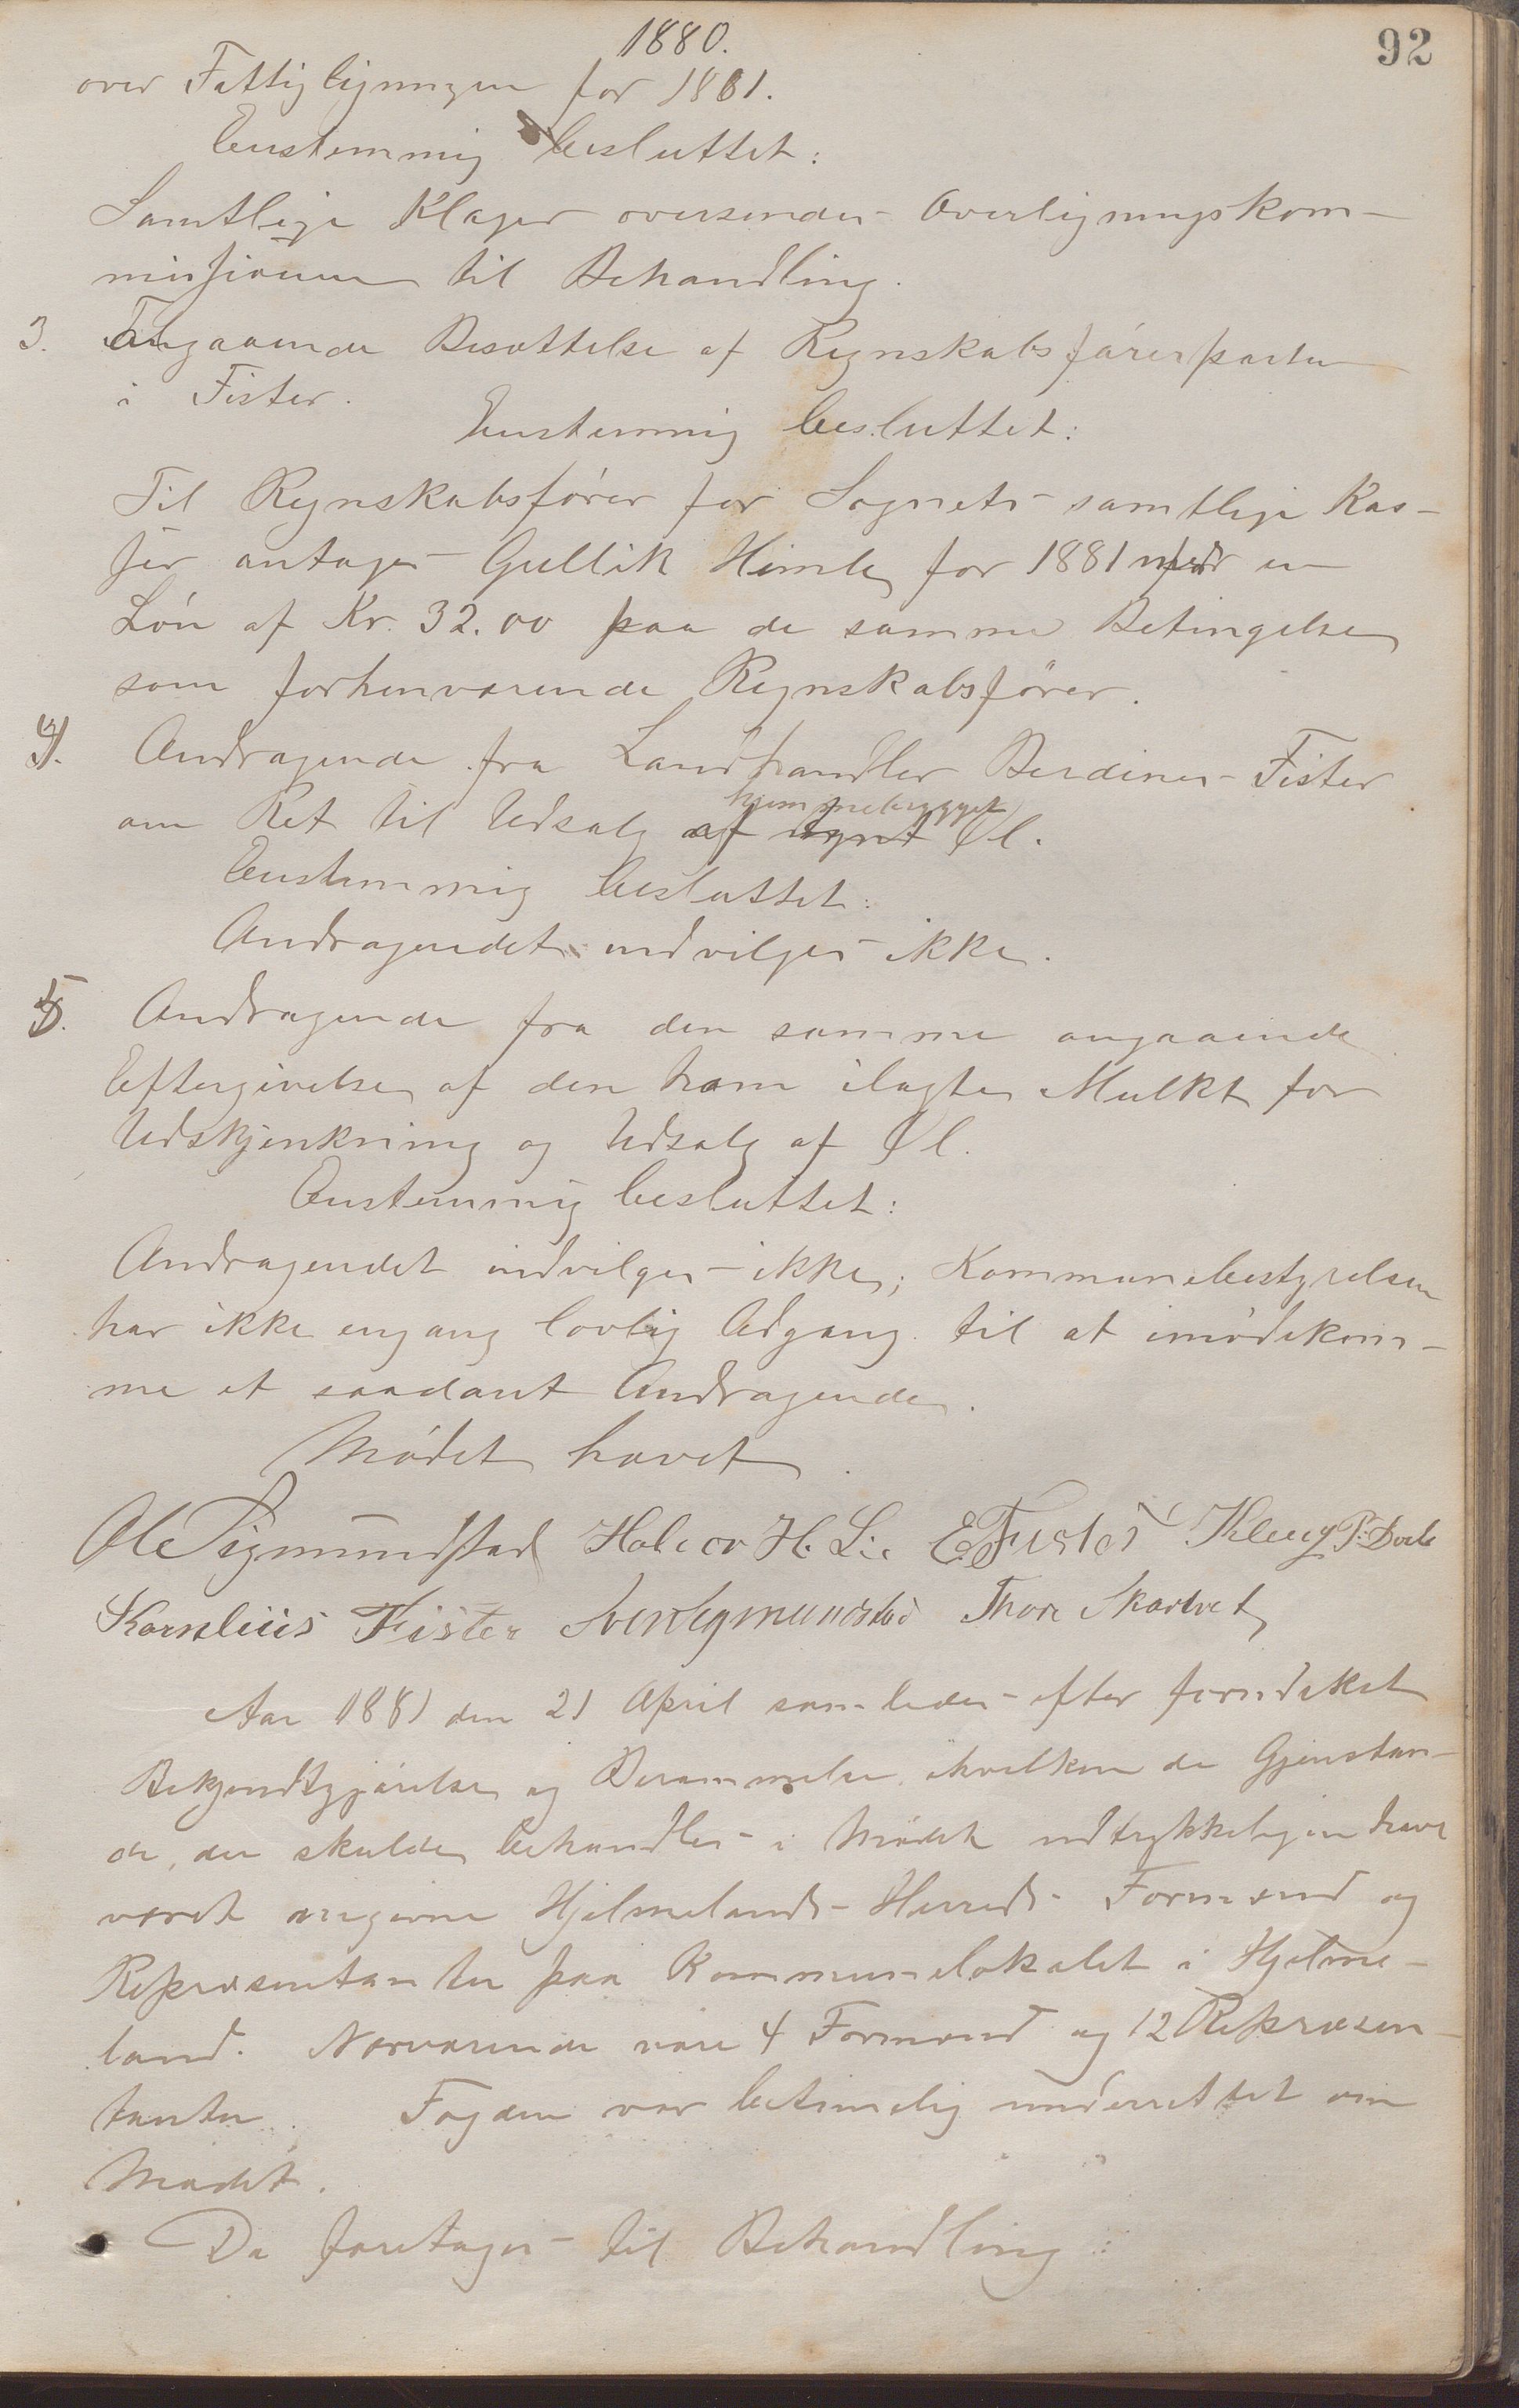 1880.
92
over Fattigligningen for 1881.
Eenstemmig besluttet:
Samtlige Klager oversendes Overligningskom-
missionen til Behandling.
3. Angaaende Besættelse af Regnskabsførerposten
i Fister.
Eenstemmig besluttet:
Til Regnskabsfører for Sognets samtlige Kas-
ser antages Gullik Himle for 1881 mod en
Løn af Kr. 32.00 paa de samme Betingelser
som forhenværende Regnskabsfører.
4). Andragende fra Landhandler Berdines Fister
hjemmebrygget
om Ret til Udsalg af Øl.
Eenstemmig besluttet:
Andragendet indvilges ikke.
5. Andragende fra den samme angaaende
Eftergivelse af den ham ilagte Mulkt for
Udskjenkning og Udsalg af Øl.
Eenstemmig besluttet:
Andragendet indvilges ikke; Kommunebestyrelsen
har ikke engang lovlig Adgang til at imødekom-
me et saadant Andragende.
Mødet hævet.
Ole Sigmundstad Halvor H. Lie E. Fister Kleng P. Dale
Kornelius Fister Sven Sigmundstad Thore Skartvet
Aar 1881 den 21 April samledes efter forudsket
Bekjendtgjørelse og Berammelse, ihvilken de Gjenstan-
de, der skulde behandles i Mødet udtrykkeligen have
været angivne Hjelmelands Herreds Formænd og
Repræsentanter paa Kommunelokalet i Hjelme-
land. Nærværende vare 4 Formænd og 12 Repræsen-
tanter. Fogden var betimelig underrettet om
Mødet.
Da foretages til Behandling: